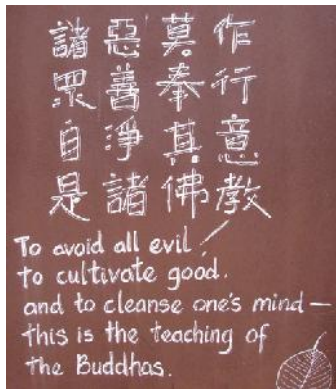 諸惡莫作
眾善奉行
自淨其意
是諸佛教
To avoid all evil,
to cultivate good,
and to cleanse one's mind —
this is the teaching of
the Buddhas.